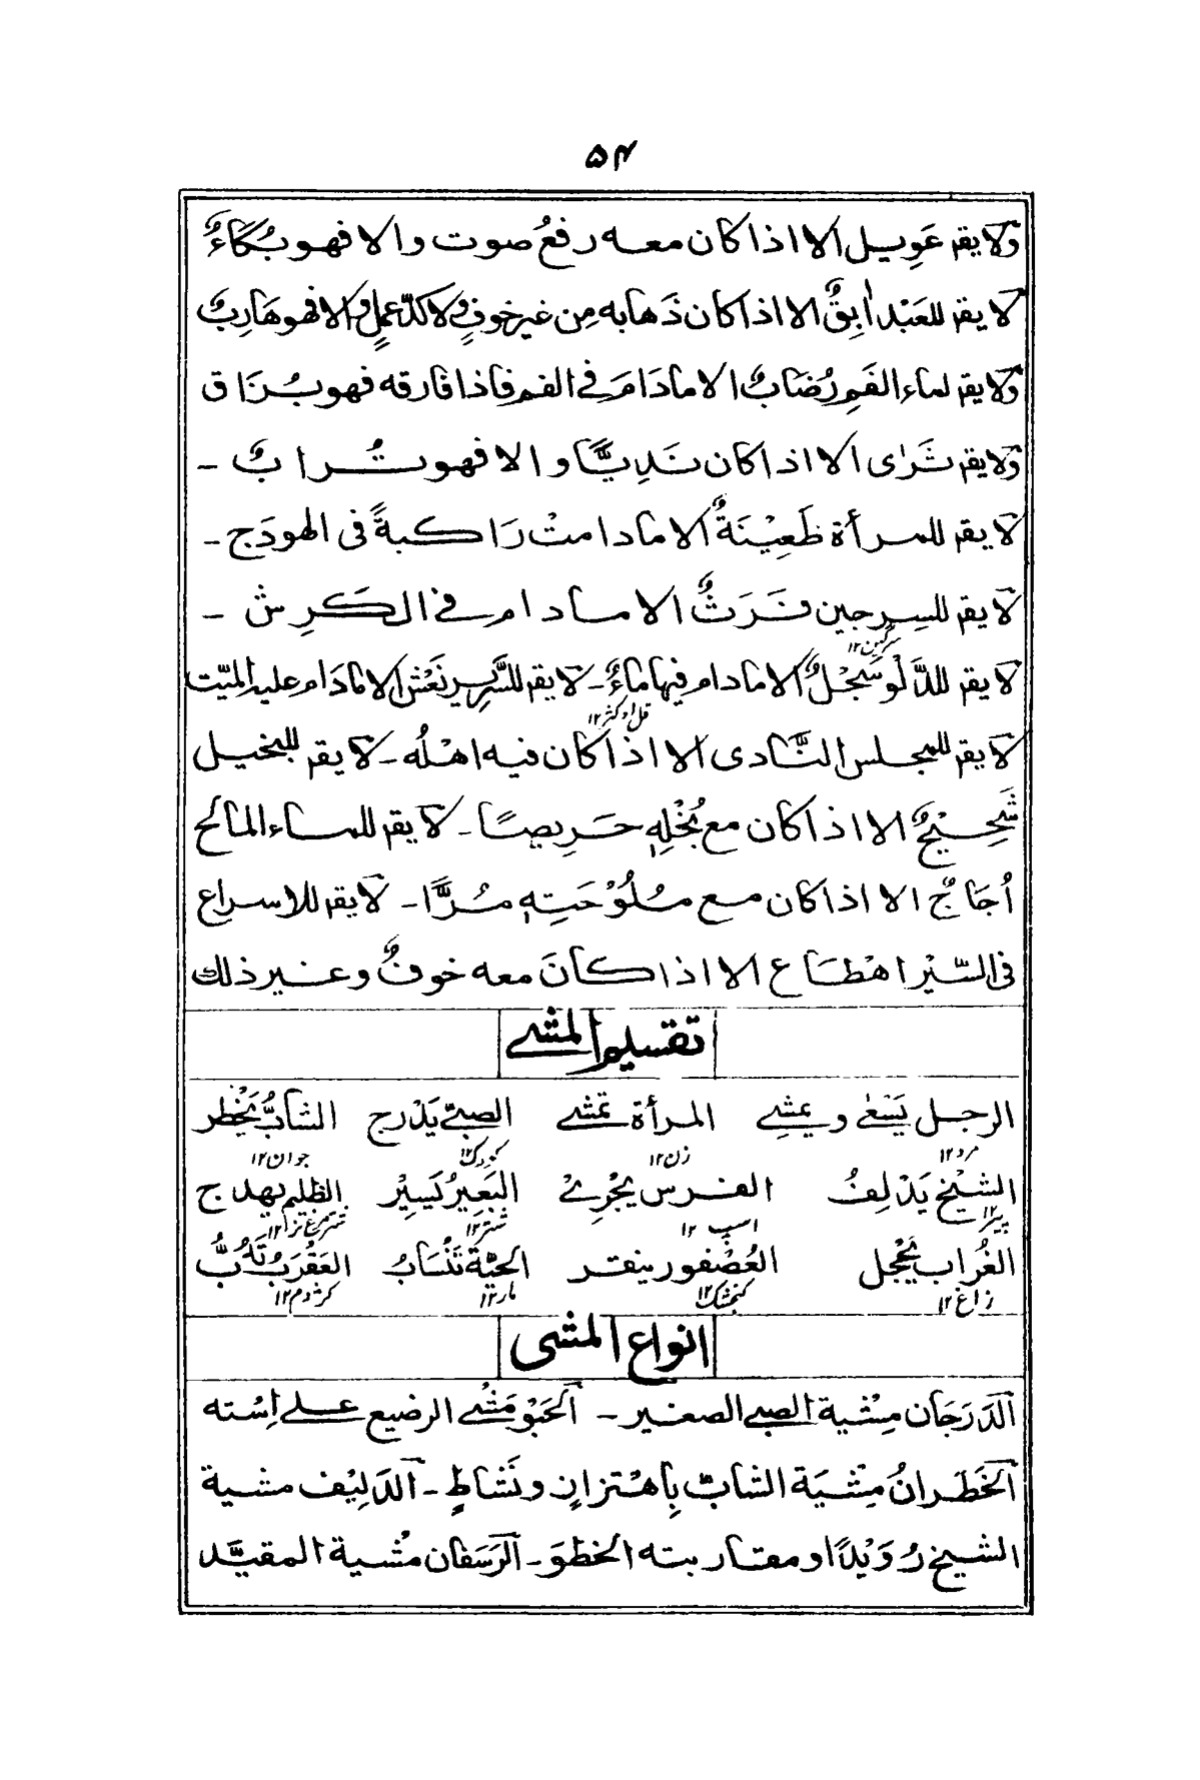 ۵۴
ولا یقم عَوِیل الا اذا کان معه رفعُ صوت والا فهو بُکاءٌ
لا یقم للعَبْد اٰبِقٌ الا اذا کان ذَهابه مِن غیر خوفٍ ولا کدّ عملٍ والا فهو هَارِبٌ
ولا یقم لماء الفَمِ رُضَابٌ الا مادَامَ فی الفم فاذا فارقه فهو بُزَاق
ولا یقم ثَرٰی الا اذا کان نَدِیًّا والا فهو تُرابٌ ۔
لا یقم للمرأة ظَعِیْنَةٌ الا مادامتْ رَاکبةً فی الهودَج ۔
لا یقم للسِرجین فَرَثٌ الا مادام فی الکَرِش ۔
سرگین ۱۲
لا یقم للدَّلْو سَجْلٌ الا مادام فیها ماءٌ ۔ لا یقم للسَّرِیر نَعْش الا مادَام علیه المیّت
قل او کثر ۱۲
لا یقم للمجلس النَّادی الا اذا کان فیه اهْلُه ۔ لا یقم للبخیل
شَحِیْحٌ الا اذا کان مع بُخْلِهٖ حَرِیصًا ۔ لا یقم للماء المالح
اُجَاجٌ الا اذا کان مع مُلُوْحَتِهٖ مُرًّا ۔ لا یقم للاسراع
فی السَّیْر اهْطَاع الا اذا کانَ معه خوفٌ وغیر ذلك
تقسیم المشی
الرجل یَسْعٰی ویمشِی المرأة تمشی الصبیّ یَدْرج الشابُّ یَخْطر
مرد ۱۲ زن ۱۲ کودک ۱۲ جوان ۱۲
الشیْخ یَدْلِفُ الفرس یَجْرِیْ البَعِیرُ یَسِیْر الظلیم یهدج
پیر ۱۲ اسپ ۱۲ شتر ۱۲ شترمرغ نر ۱۲
الغُراب یَحْجل العُصْفور ینقر الحیّة تَنْسَابُ العَقْرَبُ تَدُبُّ
زاغ ۱۲ کنجشک ۱۲ مار ۱۲ کژدم ۱۲
انواع المشی
اَلدَرَجَان مِشْیة الصبی الصغیر ۔ اَلحَبْو مَشْی الرضیع علی اِسْته
اَلخَطَرانُ مِشْیَة الشابّ بِاهْتزازٍ ونَشاطٍ ۔ اَلدَلِیْف مشیة
الشیخ رُوَیْدًا ومقاربته الخطوَ ۔ اَلرَسَفان مِشْیة المقیَّد